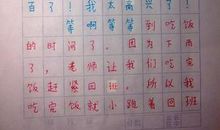 百了！我太高兴了！
等啊等等到吃饭
的时间了。因为下雨
了，老师让我们吃完
饭赶紧回班。所以我
吃完饭就小跑着回班